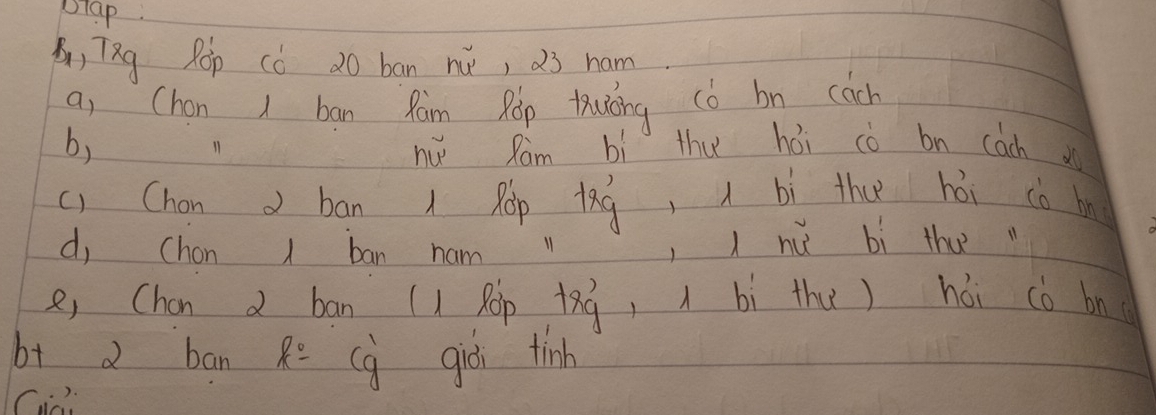 Btập :
B1, Trg lớp có 20 bạn nữ, 23 nam.
a, Chọn 1 bạn làm lớp trưởng có bn cách
b, " nữ làm bí thư hỏi có bn cách 20
c) Chọn 2 bạn 1 lớp trg̉, 1 bí thư hỏi có bn
d, Chọn 1 bạn nam ", 1 nữ bí thư "
e, Chọn 2 bạn (1 lớp trg̉, 1 bí thư) hỏi có bn
bt 2 bạn k° cg̀ giới tính
Giải: